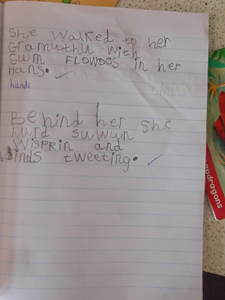 She walked to her
Gramuthu with
Sum FLOWDS in her
Hans.
hands
Behind her she
hurd suwun
Wisprin and
Binds tweeting.
apdragons